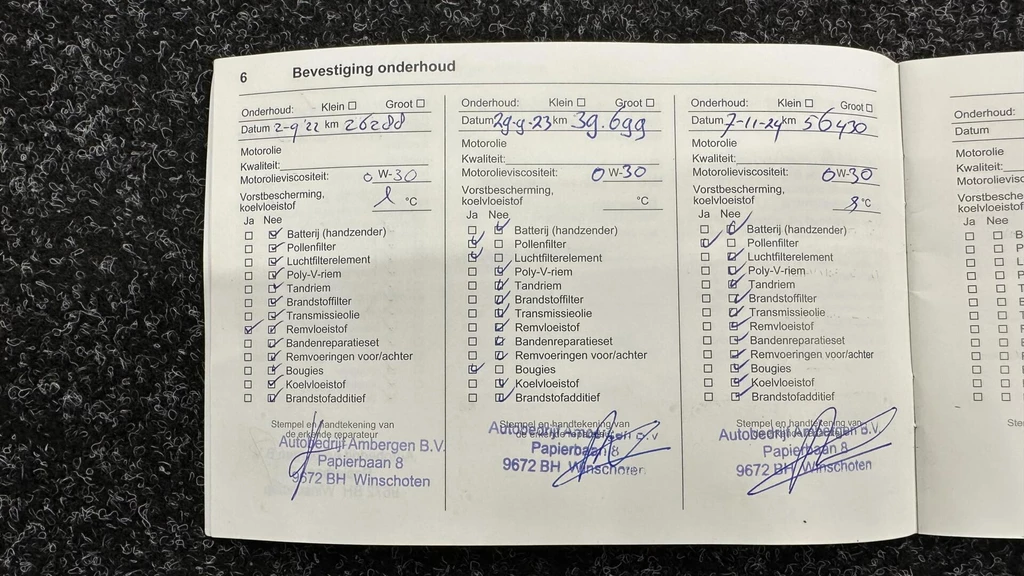 6 Bevestiging onderhoud
Onderhoud: Klein Groot
Datum 2-9'22 km 26288
Motorolie
Kwaliteit:
Motorolieviscositeit: 0 W-30
Vorstbescherming,
koelvloeistof °C
Ja Nee
Batterij (handzender)
Pollenfilter
Luchtfilterelement
Poly-V-riem
Tandriem
Brandstoffilter
Transmissieolie
Remvloeistof
Bandenreparatieset
Remvoeringen voor/achter
Bougies
Koelvloeistof
Brandstofadditief
Stempel en handtekening van
de erkende reparateur
Autobedrijf Ambergen B.V.
Papierbaan 8
9672 BH Winschoten
Onderhoud: Klein Groot
Datum 29-9-23 km 39.699
Motorolie
Kwaliteit:
Motorolieviscositeit: 0 W-30
Vorstbescherming,
koelvloeistof °C
Ja Nee
Batterij (handzender)
Pollenfilter
Luchtfilterelement
Poly-V-riem
Tandriem
Brandstoffilter
Transmissieolie
Remvloeistof
Bandenreparatieset
Remvoeringen voor/achter
Bougies
Koelvloeistof
Brandstofadditief
Stempel en handtekening van
de erkende reparateur
Autobedrijf Ambergen B.V.
Papierbaan 8
9672 BH Winschoten
Onderhoud: Klein Groot
Datum 7-11-24 km 56430
Motorolie
Kwaliteit:
Motorolieviscositeit: 0 W-30
Vorstbescherming,
koelvloeistof °C
Ja Nee
Batterij (handzender)
Pollenfilter
Luchtfilterelement
Poly-V-riem
Tandriem
Brandstoffilter
Transmissieolie
Remvloeistof
Bandenreparatieset
Remvoeringen voor/achter
Bougies
Koelvloeistof
Brandstofadditief
Stempel en handtekening van
de erkende reparateur
Autobedrijf Ambergen B.V.
Papierbaan 8
9672 BH Winschoten
Onderhoud:
Datum
Motorolie
Kwaliteit:
Motorolievisc
Vorstbesche
koelvloeistof
Ja Nee